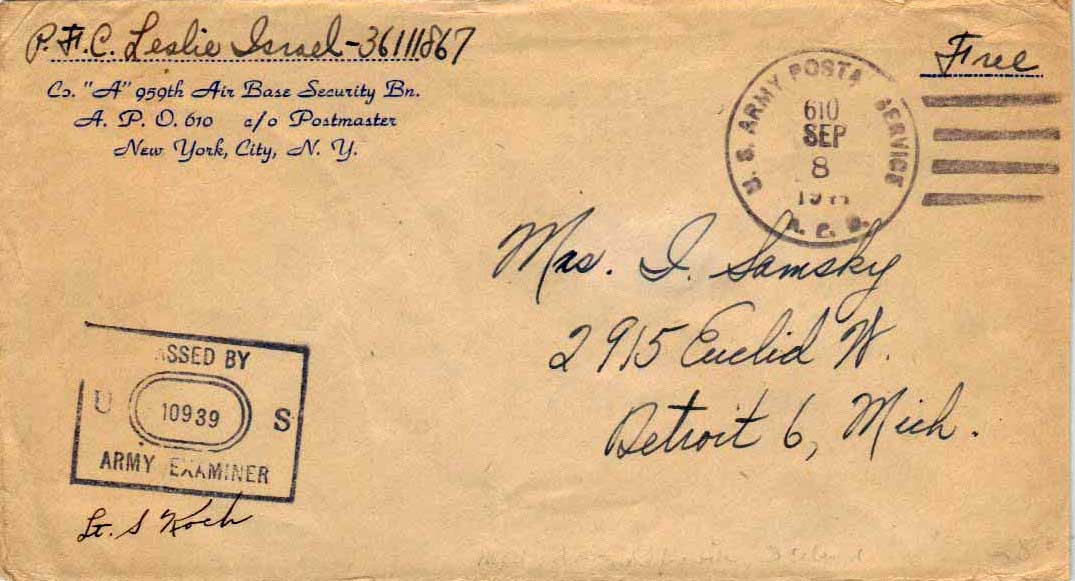 P.F.C. Leslie Israel-36111867
Co. "A" 959th Air Base Security Bn.
A. P. O. 610 c/o Postmaster
New York, City, N. Y.
Free
U. S. ARMY POSTAL SERVICE
610
SEP
8
A. P. O.
Mrs. I. Samsky
2915 Euclid W.
Detroit 6, Mich.
ASSED BY
U 10939 S
ARMY EXAMINER
Lt. S Koch